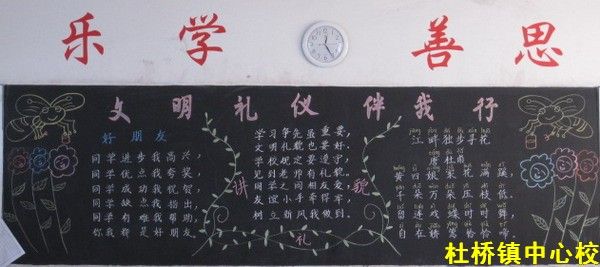 乐学 善思
文明礼仪伴我行
好朋友
同学进步我高兴，
同学优点我夸奖，
同学成功我祝贺，
同学缺点我指出，
同学有难我帮助，
你我都是好朋友。
学习争先虽重要，
文明礼貌也要好，
学校规定要遵守，
见到老师有礼貌，
同学之间
友谊
树立新风我做到。
讲
礼
貌
江畔独步寻花
唐 杜甫
黄四娘家花满蹊，
千朵万朵压枝低。
留连戏蝶时时舞，
自在娇莺恰恰啼。
杜桥镇中心校